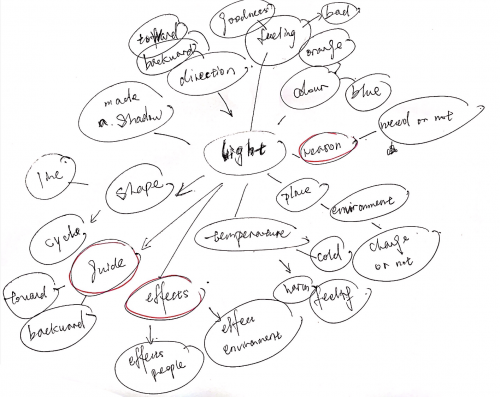 goodness
forward
backward
feeling
bad
direction
orange
colour
blue
made
a shadow
light
reason
need or not
line
shape
place
environment
cycle
temperature
cold
change
or not
guide
effects
warm
feeling
forward
backward
effect
environment
effects
people